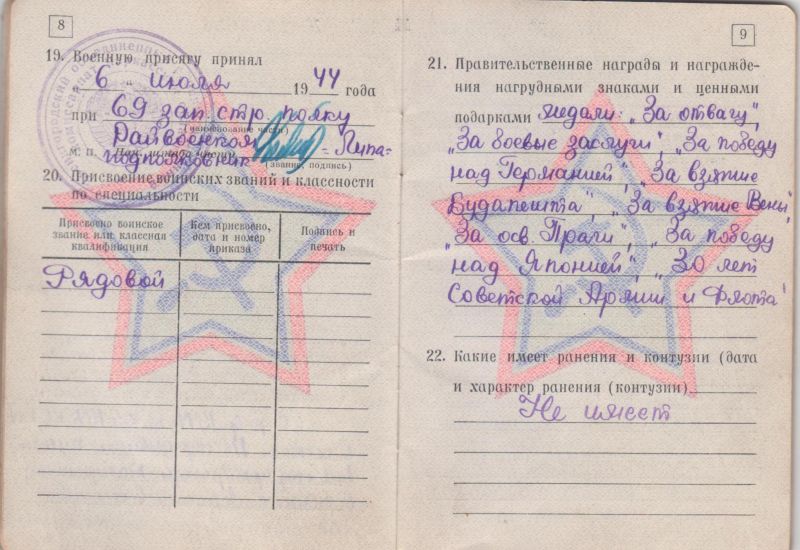 8
19. Военную присягу принял
„ 6 “ июля 1944 года
при 69 зап. стр. полку
(наименование части)
Райвоенком
м. п.
подполковник = Липа=
(звание, подпись)
20. Присвоение воинских званий и классности
по специальности
Присвоено воинское звание или классная квалификация
Кем присвоено, дата и номер приказа
Подпись и печать
Рядовой
9
21. Правительственные награды и награжде-
ния нагрудными знаками и ценными
подарками медали: „За отвагу“,
„За боевые заслуги“, „За победу
над Германией“, „За взятие
Будапешта“, „За взятие Вены“,
„За осв. Праги“, „За победу
над Японией“, „30 лет
Советской Армии и Флота“
22. Какие имеет ранения и контузии (дата
и характер ранения (контузии)
Не имеет